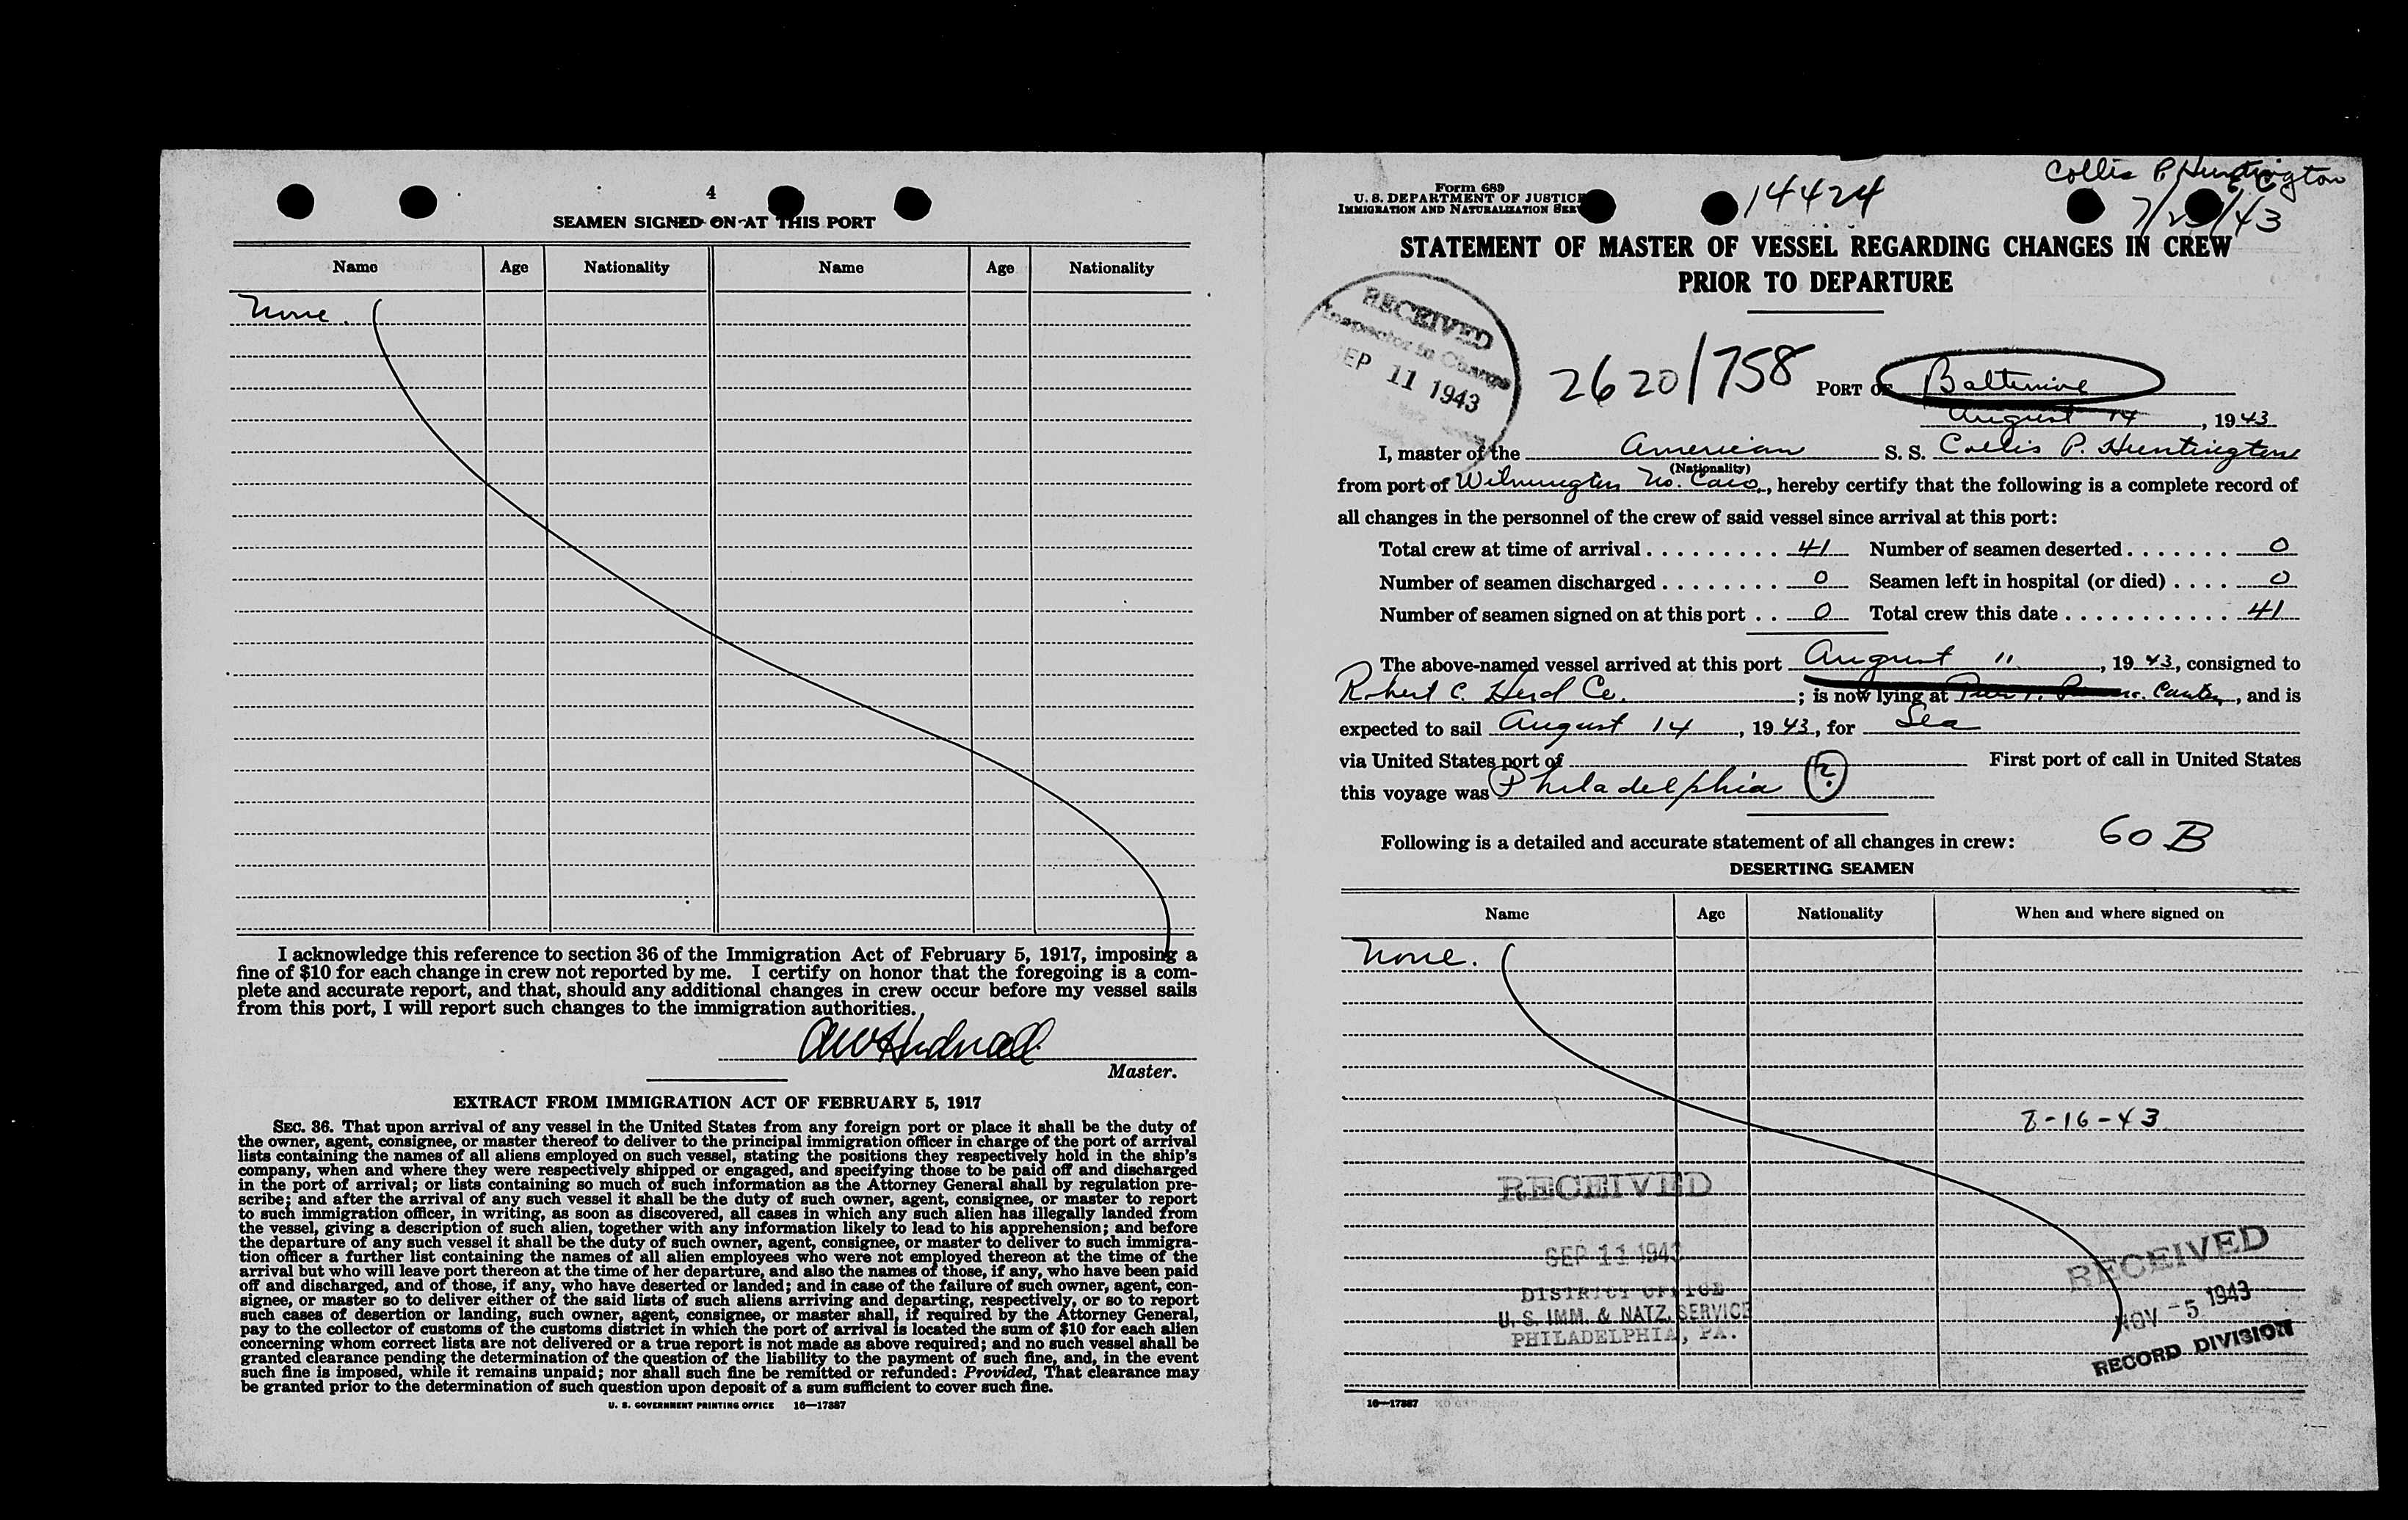 4
SEAMEN SIGNED ON AT THIS PORT
Name Age Nationality Name Age Nationality
None.
I acknowledge this reference to section 36 of the Immigration Act of February 5, 1917, imposing a
fine of $10 for each change in crew not reported by me. I certify on honor that the foregoing is a com-
plete and accurate report, and that, should any additional changes in crew occur before my vessel sails
from this port, I will report such changes to the immigration authorities.
AW Hudnall
Master.
EXTRACT FROM IMMIGRATION ACT OF FEBRUARY 5, 1917
SEC. 36. That upon arrival of any vessel in the United States from any foreign port or place it shall be the duty of
the owner, agent, consignee, or master thereof to deliver to the principal immigration officer in charge of the port of arrival
lists containing the names of all aliens employed on such vessel, stating the positions they respectively hold in the ship's
company, when and where they were respectively shipped or engaged, and specifying those to be paid off and discharged
in the port of arrival; or lists containing so much of such information as the Attorney General shall by regulation pre-
scribe; and after the arrival of any such vessel it shall be the duty of such owner, agent, consignee, or master to report
to such immigration officer, in writing, as soon as discovered, all cases in which any such alien has illegally landed from
the vessel, giving a description of such alien, together with any information likely to lead to his apprehension; and before
the departure of any such vessel it shall be the duty of such owner, agent, consignee, or master to deliver to such immigra-
tion officer a further list containing the names of all alien employees who were not employed thereon at the time of the
arrival but who will leave port thereon at the time of her departure, and also the names of those, if any, who have been paid
off and discharged, and of those, if any, who have deserted or landed; and in case of the failure of such owner, agent, con-
signee, or master so to deliver either of the said lists of such aliens arriving and departing, respectively, or so to report
such cases of desertion or landing, such owner, agent, consignee, or master shall, if required by the Attorney General,
pay to the collector of customs of the customs district in which the port of arrival is located the sum of $10 for each alien
concerning whom correct lists are not delivered or a true report is not made as above required; and no such vessel shall be
granted clearance pending the determination of the question of the liability to the payment of such fine, and, in the event
such fine is imposed, while it remains unpaid; nor shall such fine be remitted or refunded: Provided, That clearance may
be granted prior to the determination of such question upon deposit of a sum sufficient to cover such fine.
U. S. GOVERNMENT PRINTING OFFICE 16—17387
Collis P Huntington
Form 689
U. S. DEPARTMENT OF JUSTICE
IMMIGRATION AND NATURALIZATION SER
14424
7/25/43
STATEMENT OF MASTER OF VESSEL REGARDING CHANGES IN CREW
PRIOR TO DEPARTURE
RECEIVED
Inspector in Charge
SEP 11 1943
2620/758
PORT OF Baltimore
August 14, 1943
I, master of the American S. S. Collis P. Huntington
(Nationality)
from port of Wilmington No. Caro., hereby certify that the following is a complete record of
all changes in the personnel of the crew of said vessel since arrival at this port:
Total crew at time of arrival . . . . . . . . . 41 Number of seamen deserted . . . . . . . 0
Number of seamen discharged . . . . . . . . 0 Seamen left in hospital (or died) . . . . 0
Number of seamen signed on at this port . . 0 Total crew this date . . . . . . . . . . . 41
The above-named vessel arrived at this port August 11, 1943, consigned to
Robert C. Herd Co.; is now lying at Pier 1. Canton, and is
expected to sail August 14, 1943, for Sea
via United States port of First port of call in United States
this voyage was Philadelphia ?
Following is a detailed and accurate statement of all changes in crew:
60 B
DESERTING SEAMEN
Name Age Nationality When and where signed on
None.
8-16-43
RECEIVED
SEP 11 1943
DISTRICT OFFICE
U. S. IMM. & NATZ. SERVICE
PHILADELPHIA, PA.
RECEIVED
NOV -5 1943
RECORD DIVISION
16—17387